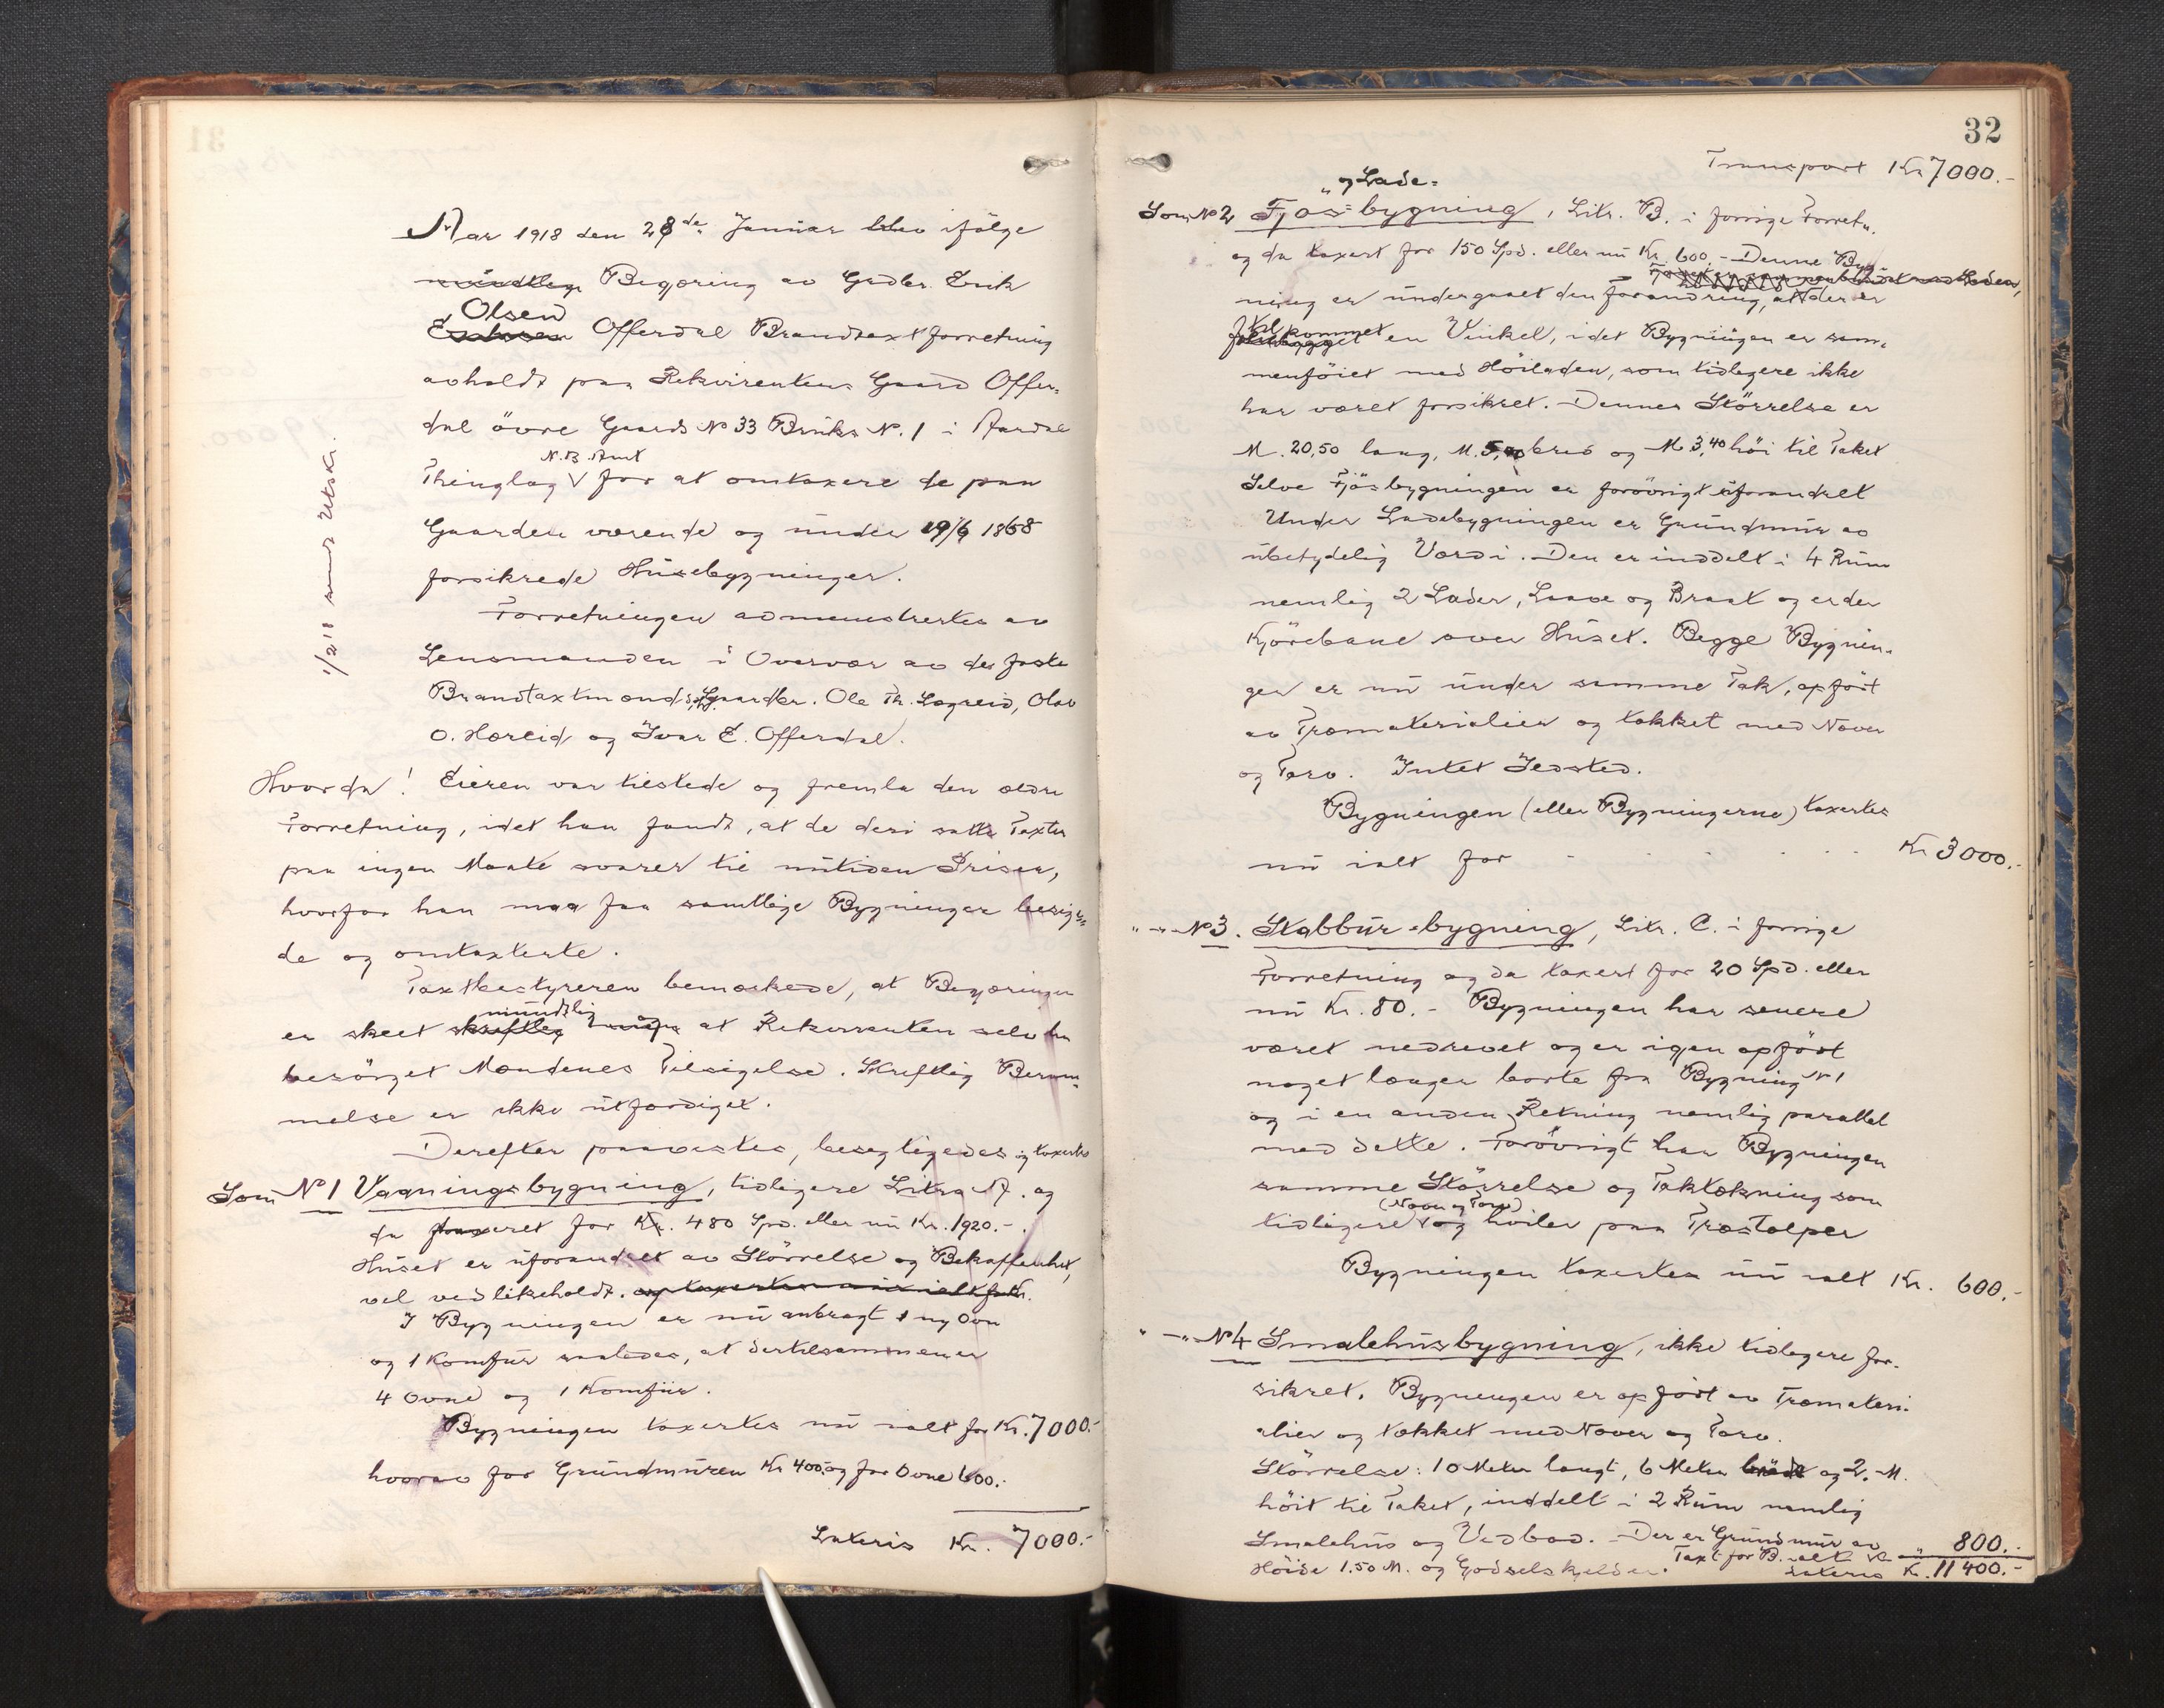 Aar 1918 den 28de Januar blev ifølge
mündtlig Begjæring av Grdbr. Erik
Olsen
Offerdal Brandtaxtforretning
avholdt paa Rekvirentens Gaard Offer-
dal övre Gaards No 33 Bruks No. 1 i Aardal
N. B. Amt
Thinglag for at omtaxere de paa
Gaarden værende og under 19/6 1868
forsikrede Husebygninger.
Forretningen administrertes av
Lensmanden i Overvær av de faste
Brandtaxtmænd, Gaardbr. Ole Th. Lægreid, Olav
O. Hæreid og Ivar E. Offerdal.
Hvorda! Eieren var tilstede og fremla den ældre
Forretning, idet han fandt, at de deri satte Taxter
paa ingen Maate svarer til nutidens Priser,
hvorfor han maa faa samtlige Bygninger besigti-
de og omtaxterte.
Taxtbestyreren bemærkede, at Begjæringen
mündtlig
er skeet skriftlig at Rekvirenten selv har
besörget Mændenes Tilsigelse. Skriftlig Beram-
melse er ikke utfærdiget.
Derefter paavistes, besigtigedes og taxertes
Som No 1 Vaaningsbygning, tidligere Litra A. og
da taxeret for Kr. 480 Spd. eller nu Kr. 1920.-
Huset er uforandret av Störrelse og Beskaffenhet,
vel vedlikeholdt. og taxertes nu ialt for Kr.
I Bygningen er nu anbragt 1 ny Ovn
og 1 Komfur saaledes, at dertilsammen er
4 Ovne og 1 Komfur.
Bygningen taxertes nu ialt for Kr. 7000.-
hvorav for Grundmuren Kr 400.- og for Ovne 600.-
Lateris Kr. 7000.-
32
Transport Kr 7000.-
" og Lade-
Som No 2 Fjøs-bygning, Litr. B. i forrige Forretn.
og da taxert for 150 Spd. eller nu Kr. 600.- Denne Byg-
ning er undergaaet den Forandring, at der er
tilkommet en Vinkel, idet Bygningen er sam-
menföiet med Höiladen, som tidligere ikke
har været forsikret. Dennes Störrelse er
M. 20,50 lang, M. bred og M 3,40 höi til Taket
Selve Fjösbygningen er forövrigt uforandret
Under Ladebygningen er Grundmur av
ubetydelig Værdi. Den er inddelt i 4 Rum
nemlig 2 Lader, Laave og Braat og er der
Kjörebane over Huset. Begge Bygnin-
ger er nu under samme Tak, opfört
av Træmaterialier og tækket med Næver
og Torv. Intet Ildsted.
Bygningen (eller Bygningerne) taxertes
nu ialt for Kr 3000.-
" -" No 3. Stabbur-bygning, Litr. C. i forrige
Forretning og da taxert for 20 Spd. eller
nu Kr. 80.- Bygningen har senere
været nedrevet og er igjen opfört
noget længer borte fra Bygning No 1
og i en anden Retning nemlig parallel
med dette. Forövrigt har Bygningen
samme Störrelse og Taktækning som
(Næver og Torv)
tidligere og hviler paa Træstolper
Bygningen taxertes nu ialt Kr. 600.-
" -" No 4 Smalehusbygning, ikke tidligere for-
sikret. Bygningen er opfört av Træmateri-
alier og tækket med Næver og Torv.
Störrelse: 10 Meter langt, 6 Meter bredt og 2. M.
höit til Taket, inddelt i 2 Rum nemlig
Smalehus og Vedbod. Der er Grundmur av
Höide 1.50 M. og Gjödselskjelder. Taxt for B. ialt Kr " 800.-
Lateris Kr. 11400.-